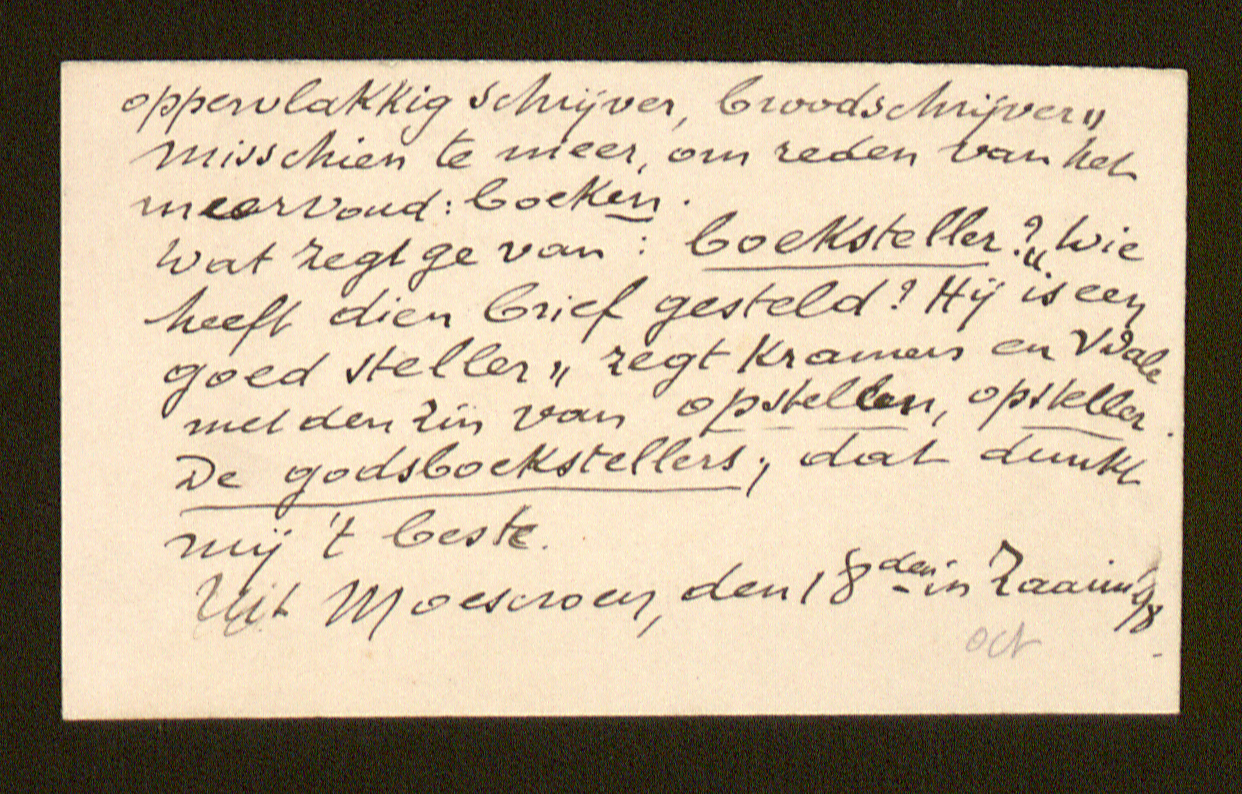 oppervlakkig schrijver, broodschrijver„
misschien te meer, om reden van het
meervoud: boeken.
Wat zegt ge van: boeksteller? „Wie
heeft dien brief gesteld? Hij is een
goed steller„ zegt Kramers en VDale
met den zin van opstellen, opsteller.
De godsboekstellers; dat dunkt
mij 't beste.
Uit Moescroen, den 18den in Zaaim. 98
oct